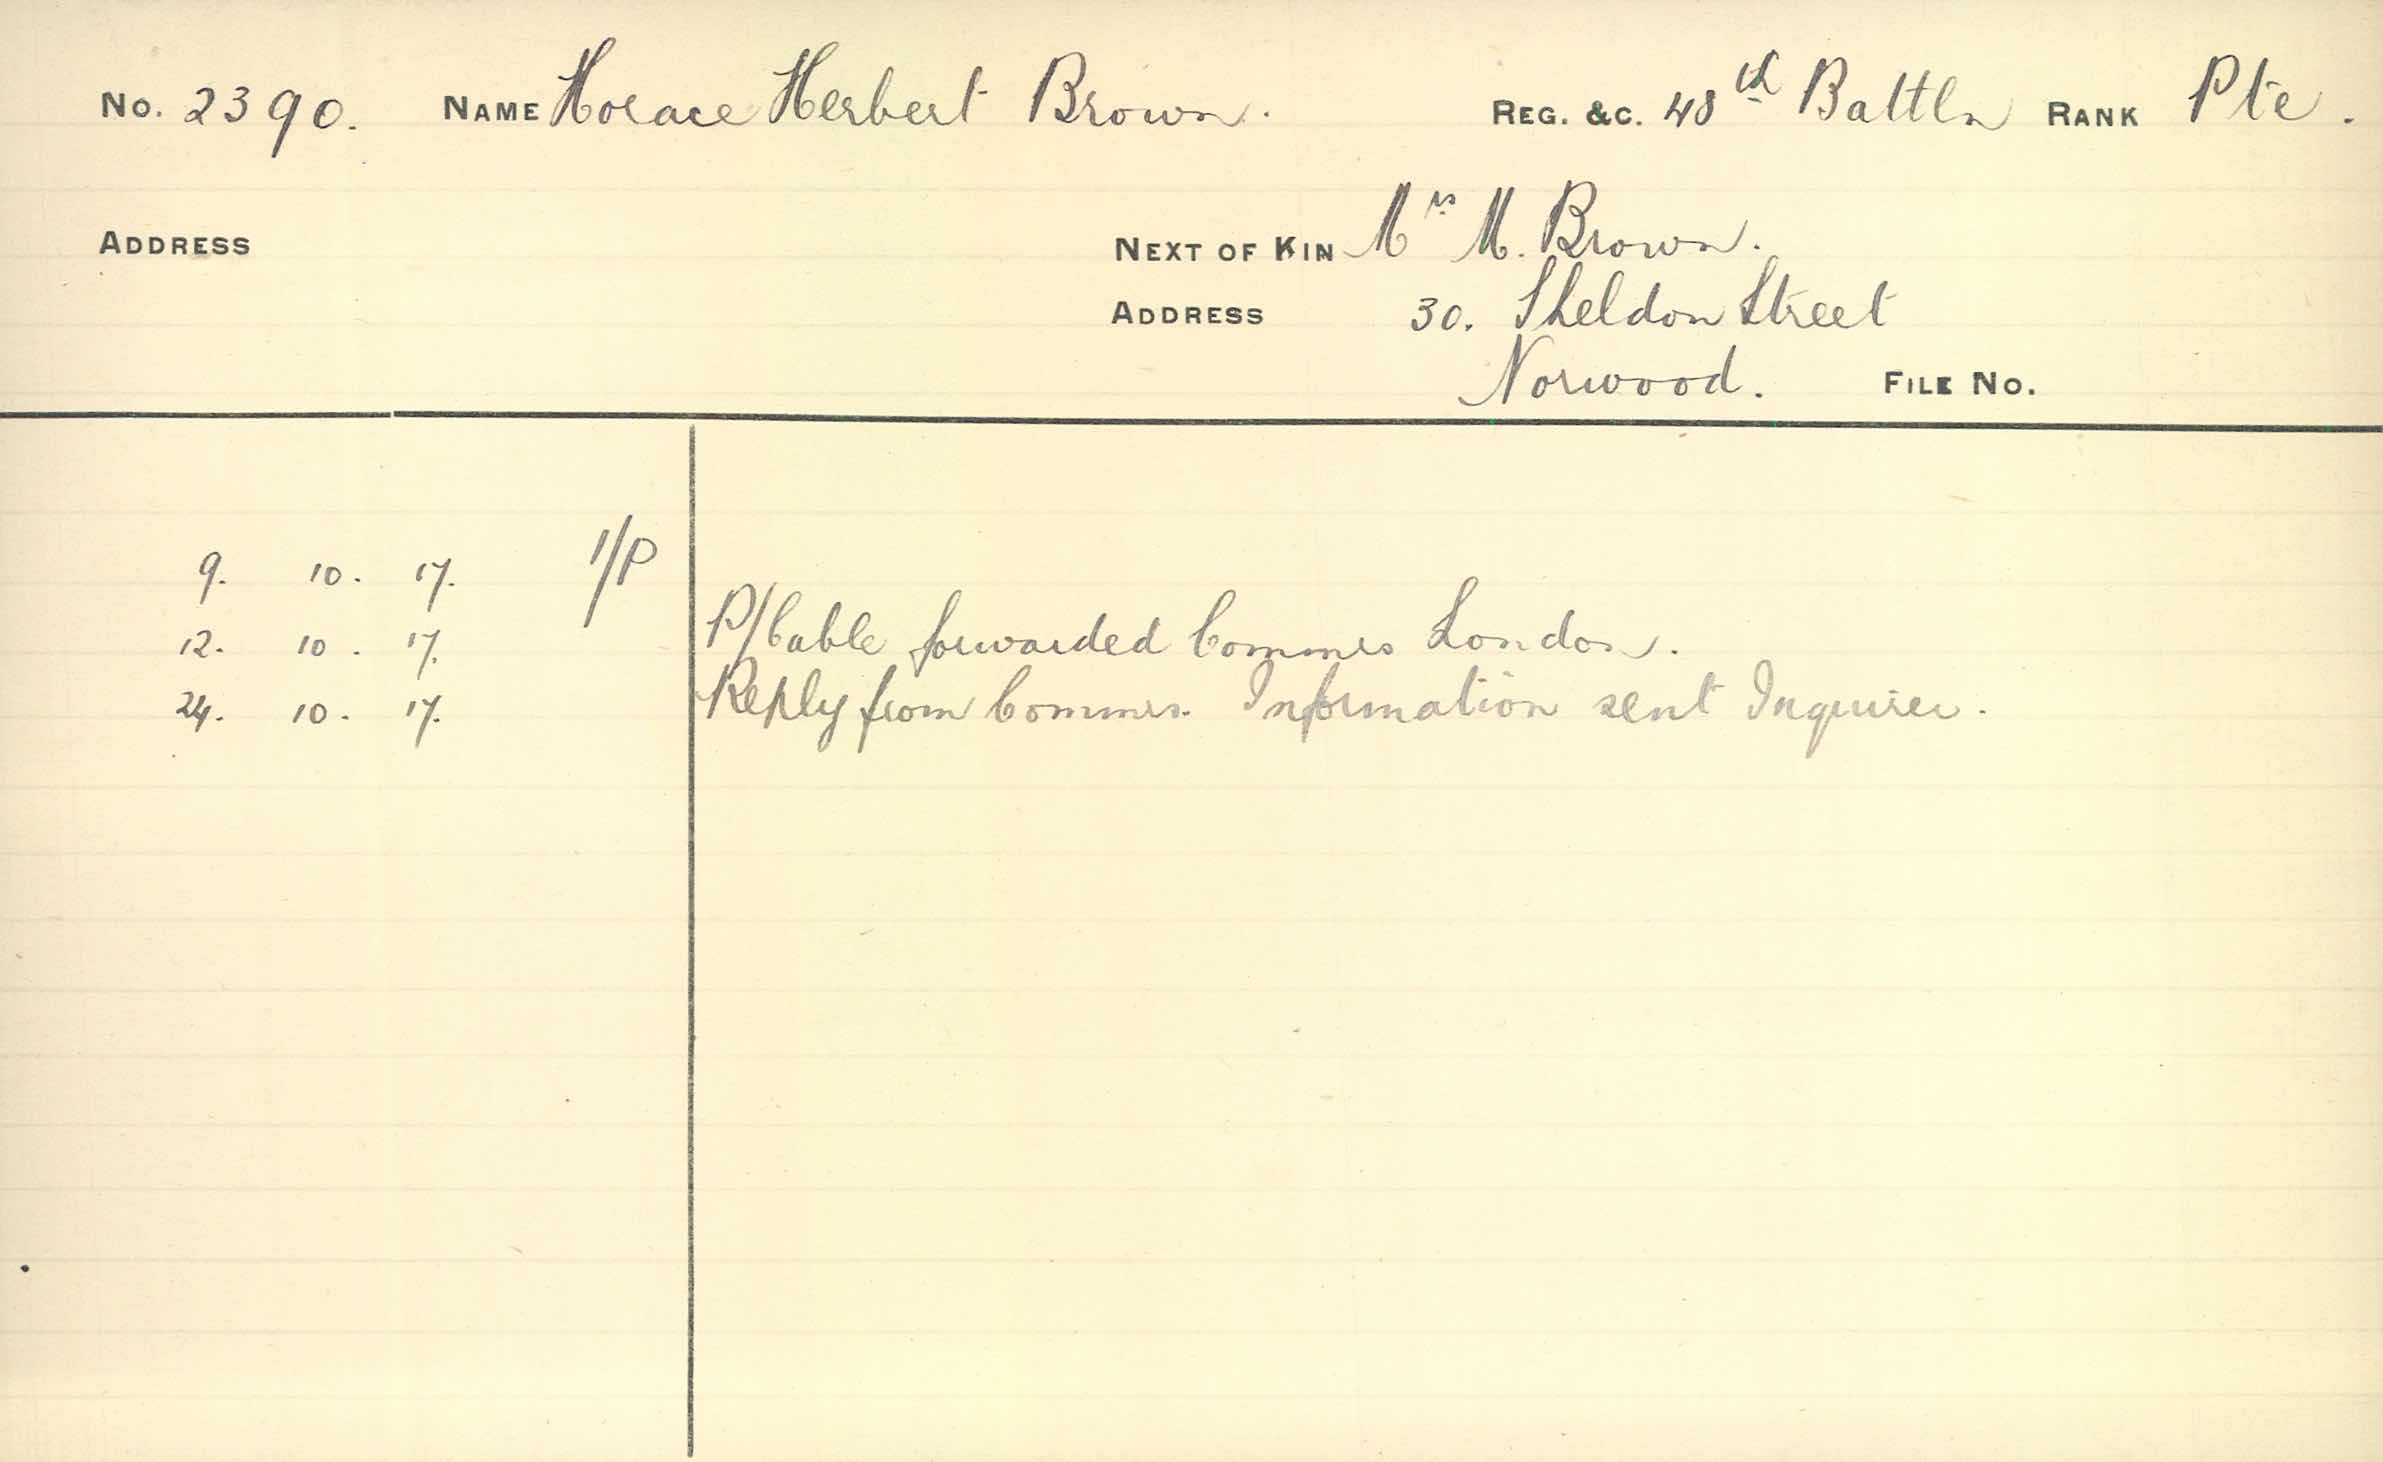 No. 2390. NAME Horace Herbert Brown. REG. &C. 48th Battln RANK Pte.
ADDRESS NEXT OF KIN Mrs M. Brown.
ADDRESS 30. Sheldon Street
Norwood. FILE No.
9. 10. 17. 1/P
12. 10. 17. P/Cable forwarded Commrs London.
24. 10. 17. Reply from Commrs. Information sent Inquirer.